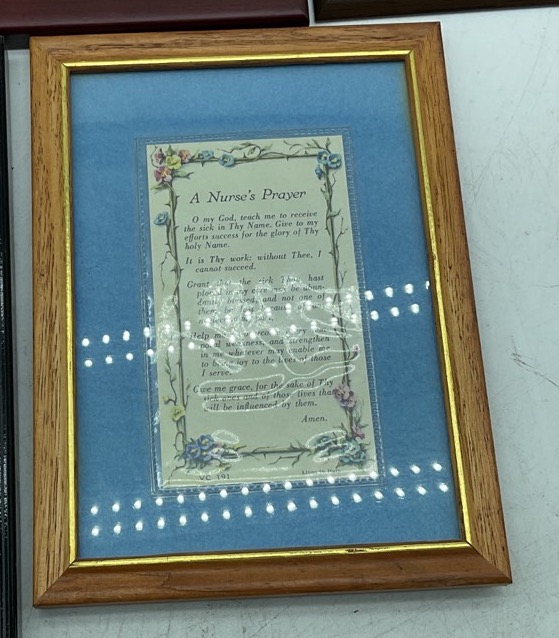 A Nurse's Prayer
O my God, teach me to receive
the sick in Thy Name. Give to my
efforts success for the glory of Thy
holy Name.
It is Thy work: without Thee, I
cannot succeed.
Grant that the sick Thou hast
placed in my care may be abun-
dantly blessed, and not one of
them be
Help me
poral weakness, and strengthen
in me whatever may enable me
to bring joy to the lives of those
I serve.
Give me grace, for the sake of Thy
sick ones and of those lives that
will be influenced by them.
Amen.
VC 191